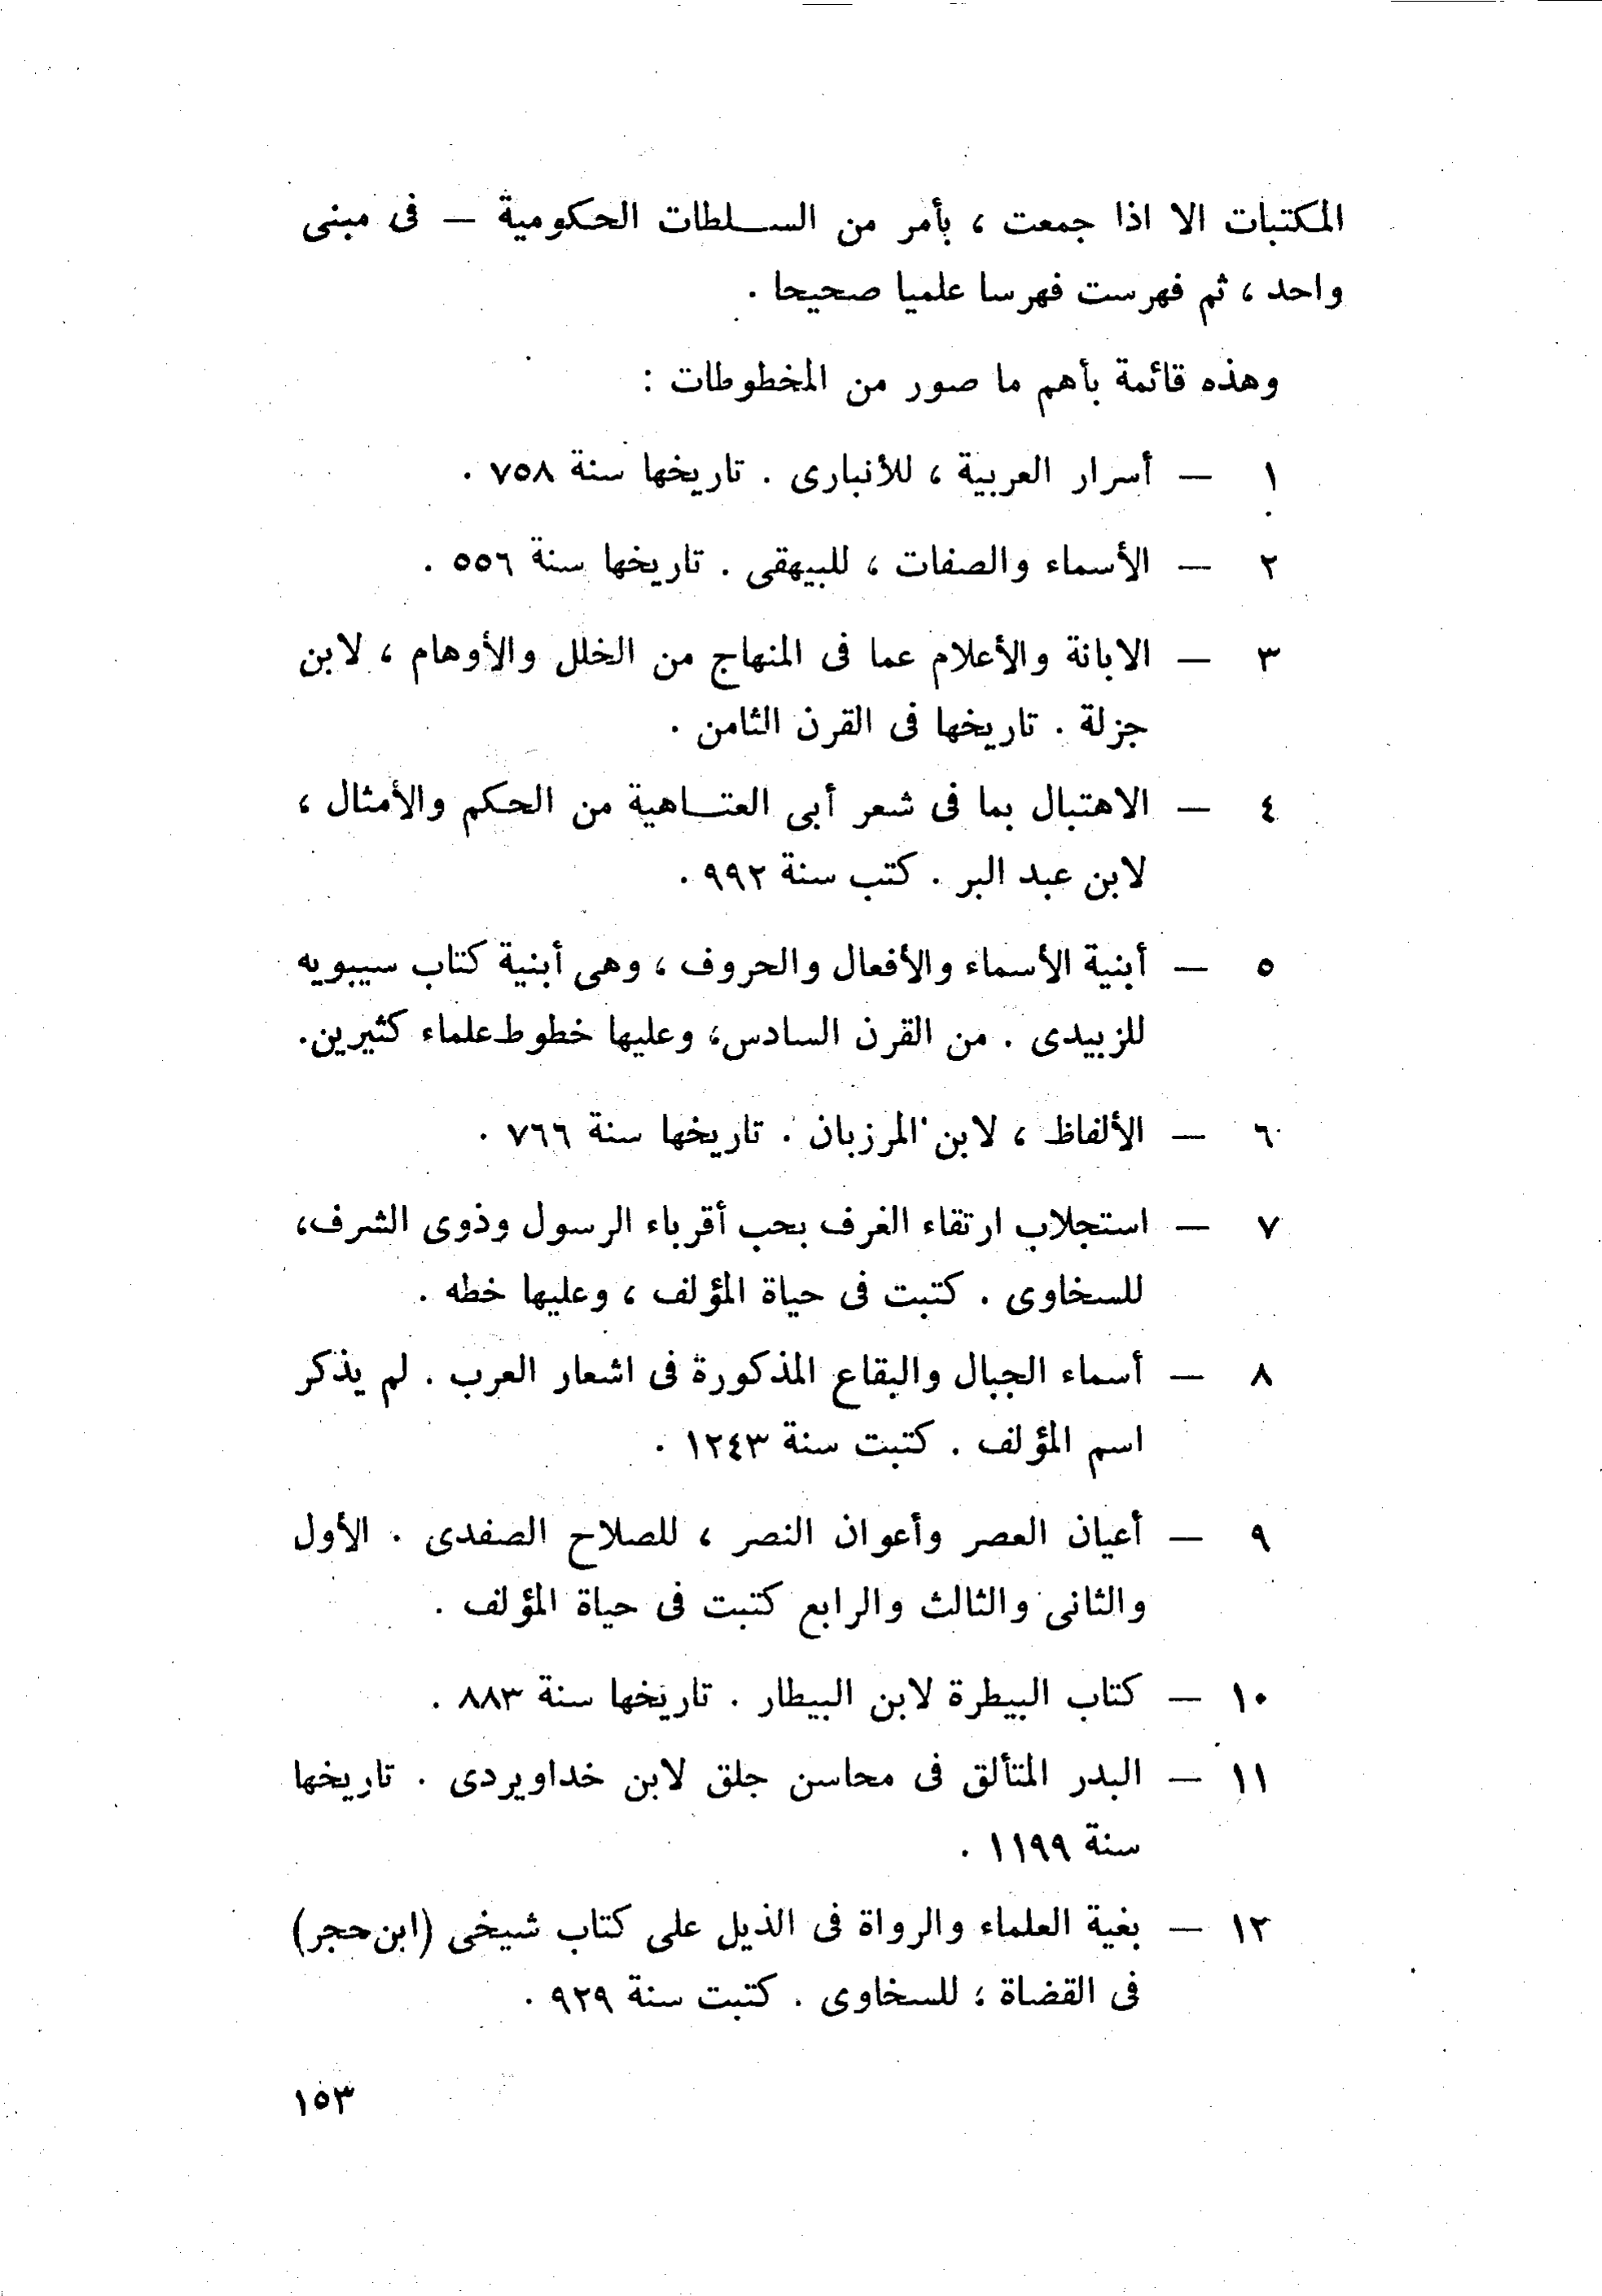 المكتبات الا اذا جمعت ، بأمر من السلطات الحكومية — فى مبنى
واحد ، ثم فهرست فهرسا علميا صحيحا .
وهذه قائمة بأهم ما صور من المخطوطات :
١ — أسرار العربية ، للأنبارى . تاريخها سنة ٧٥٨ .
٢ — الأسماء والصفات ، للبيهقى . تاريخها سنة ٥٥٦ .
٣ — الابانة والأعلام عما فى المنهاج من الخلل والأوهام ، لابن
جزلة . تاريخها فى القرن الثامن .
٤ — الاهتبال بما فى شعر أبى العتاهية من الحكم والأمثال ،
لابن عبد البر . كتب سنة ٩٩٢ .
٥ — أبنية الأسماء والأفعال والحروف ، وهى أبنية كتاب سيبويه
للزبيدى . من القرن السادس، وعليها خطوط علماء كثيرين.
٦ — الألفاظ ، لابن المرزبان . تاريخها سنة ٧٦٦ .
٧ — استجلاب ارتقاء الغرف بحب أقرباء الرسول وذوى الشرف،
للسخاوى . كتبت فى حياة المؤلف ، وعليها خطه .
٨ — أسماء الجبال والبقاع المذكورة فى اشعار العرب . لم يذكر
اسم المؤلف . كتبت سنة ١٢٤٣ .
٩ — أعيان العصر وأعوان النصر ، للصلاح الصفدى . الأول
والثانى والثالث والرابع كتبت فى حياة المؤلف .
١٠ — كتاب البيطرة لابن البيطار . تاريخها سنة ٨٨٣ .
١١ — البدر المتألق فى محاسن جلق لابن خداويردى . تاريخها
سنة ١١٩٩ .
١٢ — بغية العلماء والرواة فى الذيل على كتاب شيخى (ابن حجر)
فى القضاة ؛ للسخاوى . كتبت سنة ٩٢٩ .
١٥٣